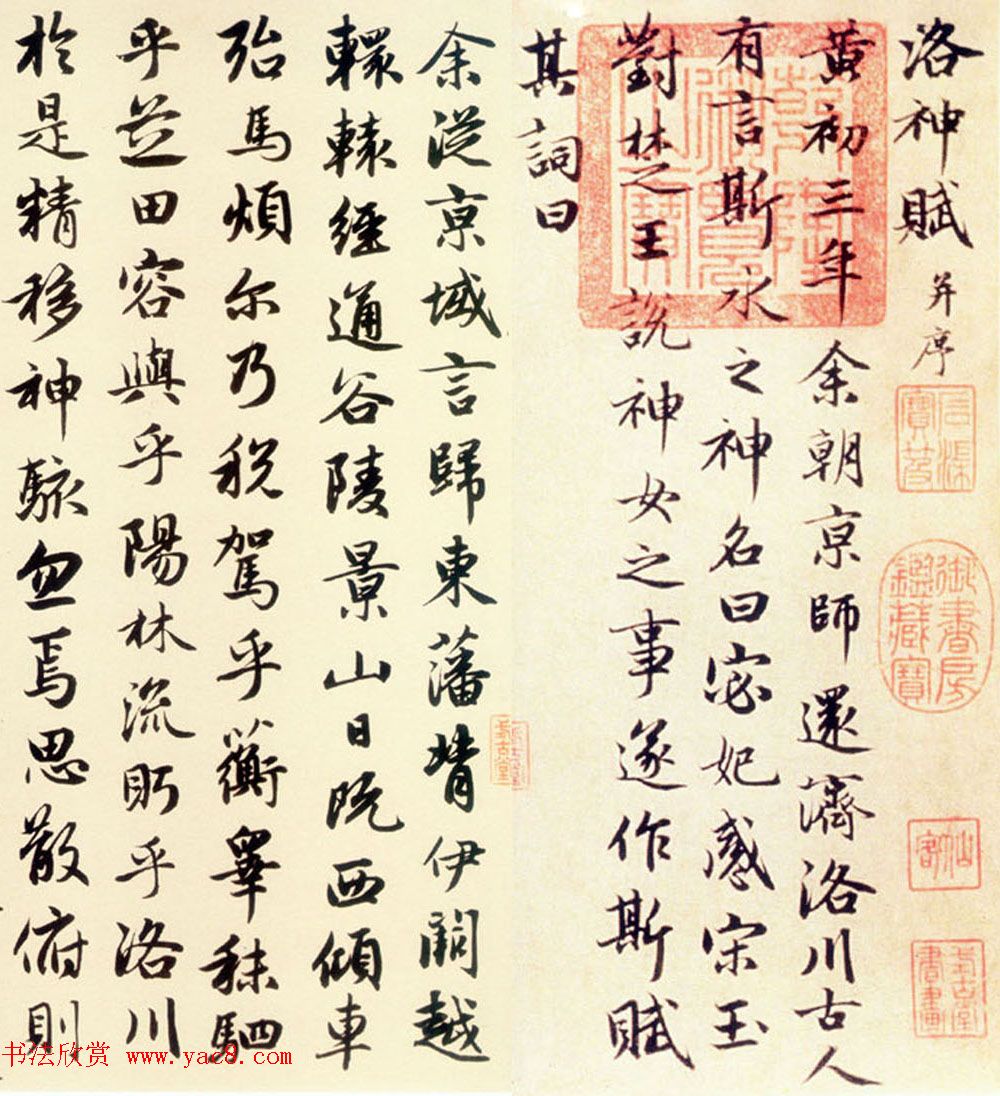 洛神賦 并序
黄初三年余朝京師還濟洛川古人
有言斯水之神名曰宓妃感宋玉
對楚王說神女之事遂作斯賦
其詞曰
余從京域言歸東藩背伊闕越
轘轅經通谷陵景山日既西傾車
殆馬煩尔乃稅駕乎蘅睪秣駟
乎芝田容與乎陽林流眄乎洛川
於是精移神駭忽焉思散俯則
石渠寶笈
御書房鑑藏寶
书法欣赏 www.yac8.com